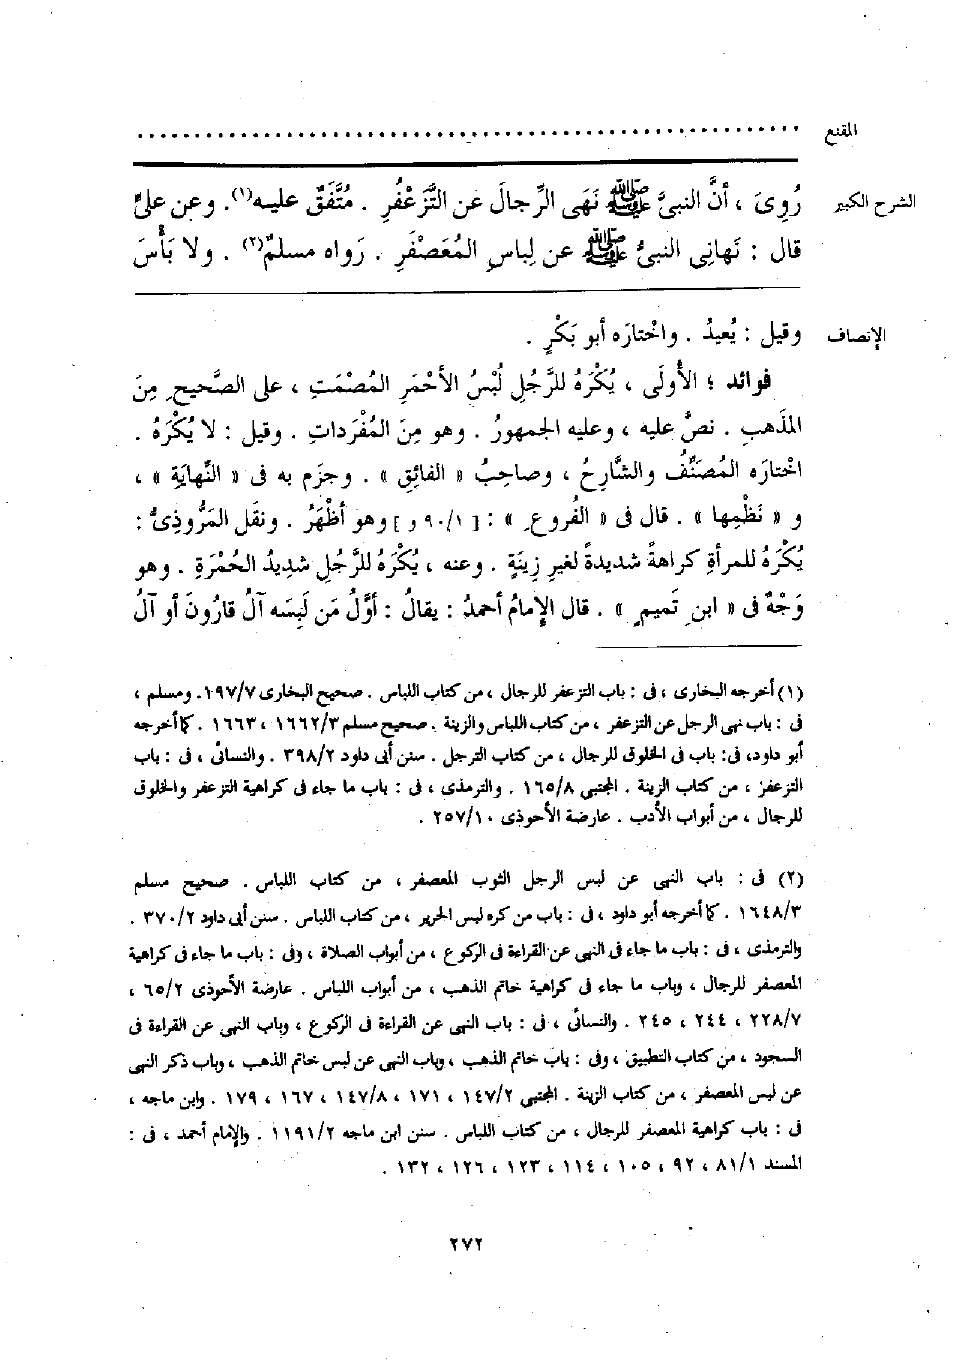 المقنع ..........................................................
الشرح الكبير رُوِىَ ، أنَّ النبىَّ ﷺ نَهَى الرِّجالَ عن التَّزَعْفُرِ . مُتَّفَقٌ عليه(١). وعن علىٍّ
قال : نَهانِى النبىُّ ﷺ عن لِباسِ المُعَصْفَرِ . رَواه مسلمٌ(٢) . ولا بَأْسَ
الإنصاف وقيل : يُعِيدُ . واخْتارَه أبو بَكْرٍ .
فوائد ؛ الأُولَى ، يُكْرَهُ للرَّجُلِ لُبْسُ الأحْمَرِ المُصْمَتِ ، على الصَّحيحِ مِنَ
المذهبِ . نصَّ عليه ، وعليه الجمهورُ . وهو مِنَ المُفْرَداتِ . وقيل : لا يُكْرَهُ .
اخْتارَه المُصَنِّفُ والشَّارِحُ ، وصاحِبُ « الفائقِ » . وجزَم به فى « النِّهايَةِ » ،
و « نَظْمِها » . قال فى « الفُروعِ » : [ ٩٠/١ و ] وهو أظْهَرُ . ونقَل المَرُّوذِىُّ :
يُكْرَهُ للمرأةِ كراهةً شديدةً لغيرِ زِينَةٍ . وعنه ، يُكْرَهُ للرَّجُلِ شدِيدُ الحُمْرَةِ . وهو
وَجْهٌ فى « ابنِ تَميمٍ » . قال الإمامُ أحمدُ : يقالُ : أوَّلُ مَن لَبِسَه آلُ قارُونَ أو آلُ
(١) أخرجه البخارى ، فى : باب التزعفر للرجال ، من كتاب اللباس . صحيح البخارى ١٩٧/٧. ومسلم ،
فى : باب نهى الرجل عن التزعفر ، من كتاب اللباس والزينة . صحيح مسلم ١٦٦٢/٣ ، ١٦٦٣ . كما أخرجه
أبو داود، فى: باب فى الخلوق للرجال ، من كتاب الترجل . سنن أبى داود ٣٩٨/٢ . والنسائى ، فى : باب
التزعفر ، من كتاب الزينة . المجتبى ١٦٥/٨ . والترمذى ، فى : باب ما جاء فى كراهية التزعفر والخلوق
للرجال ، من أبواب الأدب . عارضة الأحوذى ٢٥٧/١٠ .
(٢) فى : باب النهى عن لبس الرجل الثوب المعصفر ، من كتاب اللباس . صحيح مسلم
١٦٤٨/٣ . كما أخرجه أبو داود ، فى : باب من كره لبس الحرير ، من كتاب اللباس . سنن أبى داود ٣٧٠/٢ .
والترمذى ، فى : باب ما جاء فى النهى عن القراءة فى الركوع ، من أبواب الصلاة ، وفى : باب ما جاء فى كراهية
المعصفر للرجال ، وباب ما جاء فى كراهية خاتم الذهب ، من أبواب اللباس . عارضة الأحوذى ٦٥/٢ ،
٢٢٨/٧ ، ٢٤٤ ، ٢٤٥ . والنسائى ، فى : باب النهى عن القراءة فى الركوع ، وباب النهى عن القراءة فى
السجود ، من كتاب التطبيق ، وفى : باب خاتم الذهب ، وباب النهى عن لبس خاتم الذهب ، وباب ذكر النهى
عن لبس المعصفر ، من كتاب الزينة . المجتبى ١٤٧/٢ ، ١٧١ ، ١٤٧/٨ ، ١٦٧ ، ١٧٩ . وابن ماجه ،
فى : باب كراهية المعصفر للرجال ، من كتاب اللباس . سنن ابن ماجه ١١٩١/٢ . والإمام أحمد ، فى :
المسند ٨١/١ ، ٩٢ ، ١٠٥ ، ١١٤ ، ١٢٣ ، ١٢٦ ، ١٣٢ .
٢٧٢